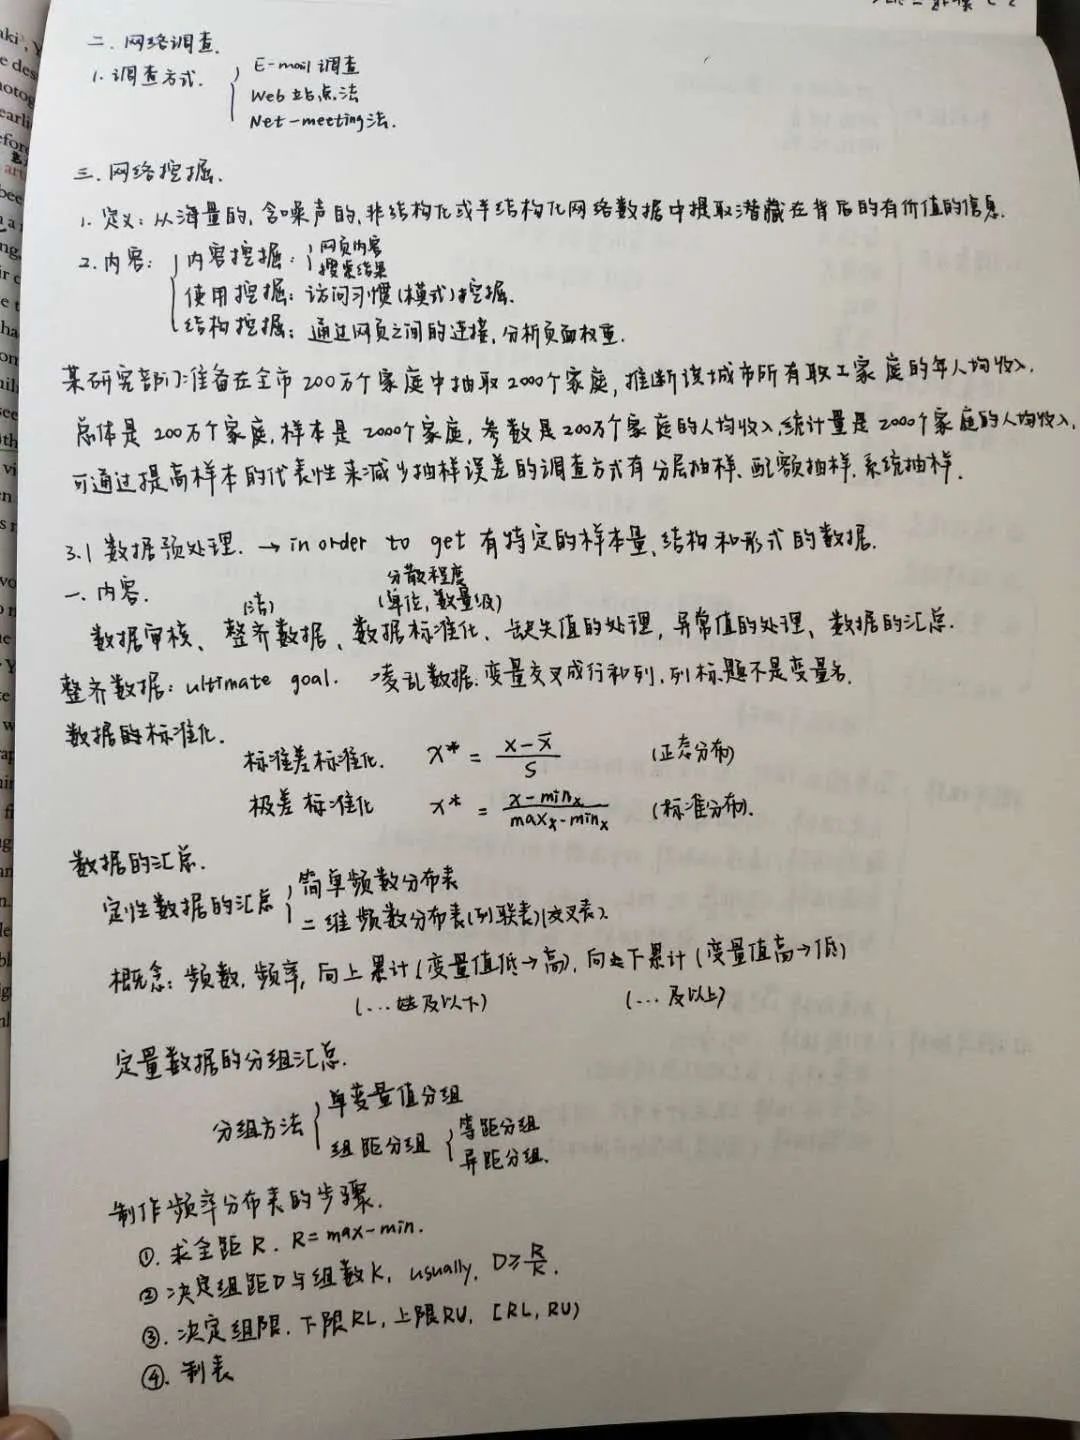 二. 网络调查.
1. 调查方式. E-mail 调查
Web 站点法
Net-meeting法.
三. 网络挖掘.
1. 定义: 从海量的, 含噪声的, 非结构化或半结构化网络数据中提取潜藏在背后的有价值的信息.
2. 内容: 内容挖掘: 网页内容
搜索结果
使用挖掘: 访问习惯(模式)挖掘.
结构挖掘: 通过网页之间的连接, 分析页面权重.
某研究部门准备在全市200万个家庭中抽取2000个家庭, 推断该城市所有职工家庭的年人均收入.
总体是200万个家庭, 样本是2000个家庭, 参数是200万个家庭的人均收入, 统计量是2000个家庭的人均收入,
可通过提高样本的代表性来减少抽样误差的调查方式有分层抽样、配额抽样, 系统抽样.
3.1 数据预处理. → in order to get 有特定的样本量、结构和形式的数据.
一. 内容.
分散程度
(洁) (单位, 数量级)
数据审核、整齐数据、数据标准化、缺失值的处理, 异常值的处理、数据的汇总.
整齐数据: ultimate goal. 凌乱数据: 变量交叉成行和列, 列标题不是变量名.
数据的标准化.
标准差标准化. x* = (x-x̄)/S (正态分布)
极差标准化 x* = (x-minx)/(maxx-minx) (标准分布).
数据的汇总.
定性数据的汇总 简单频数分布表
二维频数分布表(列联表)(交叉表).
概念: 频数, 频率, 向上累计(变量值低→高), 向下累计(变量值高→低)
(...及以下) (...及以上)
定量数据的分组汇总.
分组方法 单变量值分组
组距分组 等距分组
异距分组.
制作频率分布表的步骤.
①. 求全距R. R=max-min.
② 决定组距D与组数K, usually, D≥R/K.
③. 决定组限. 下限RL, 上限RU, [RL, RU)
④. 制表